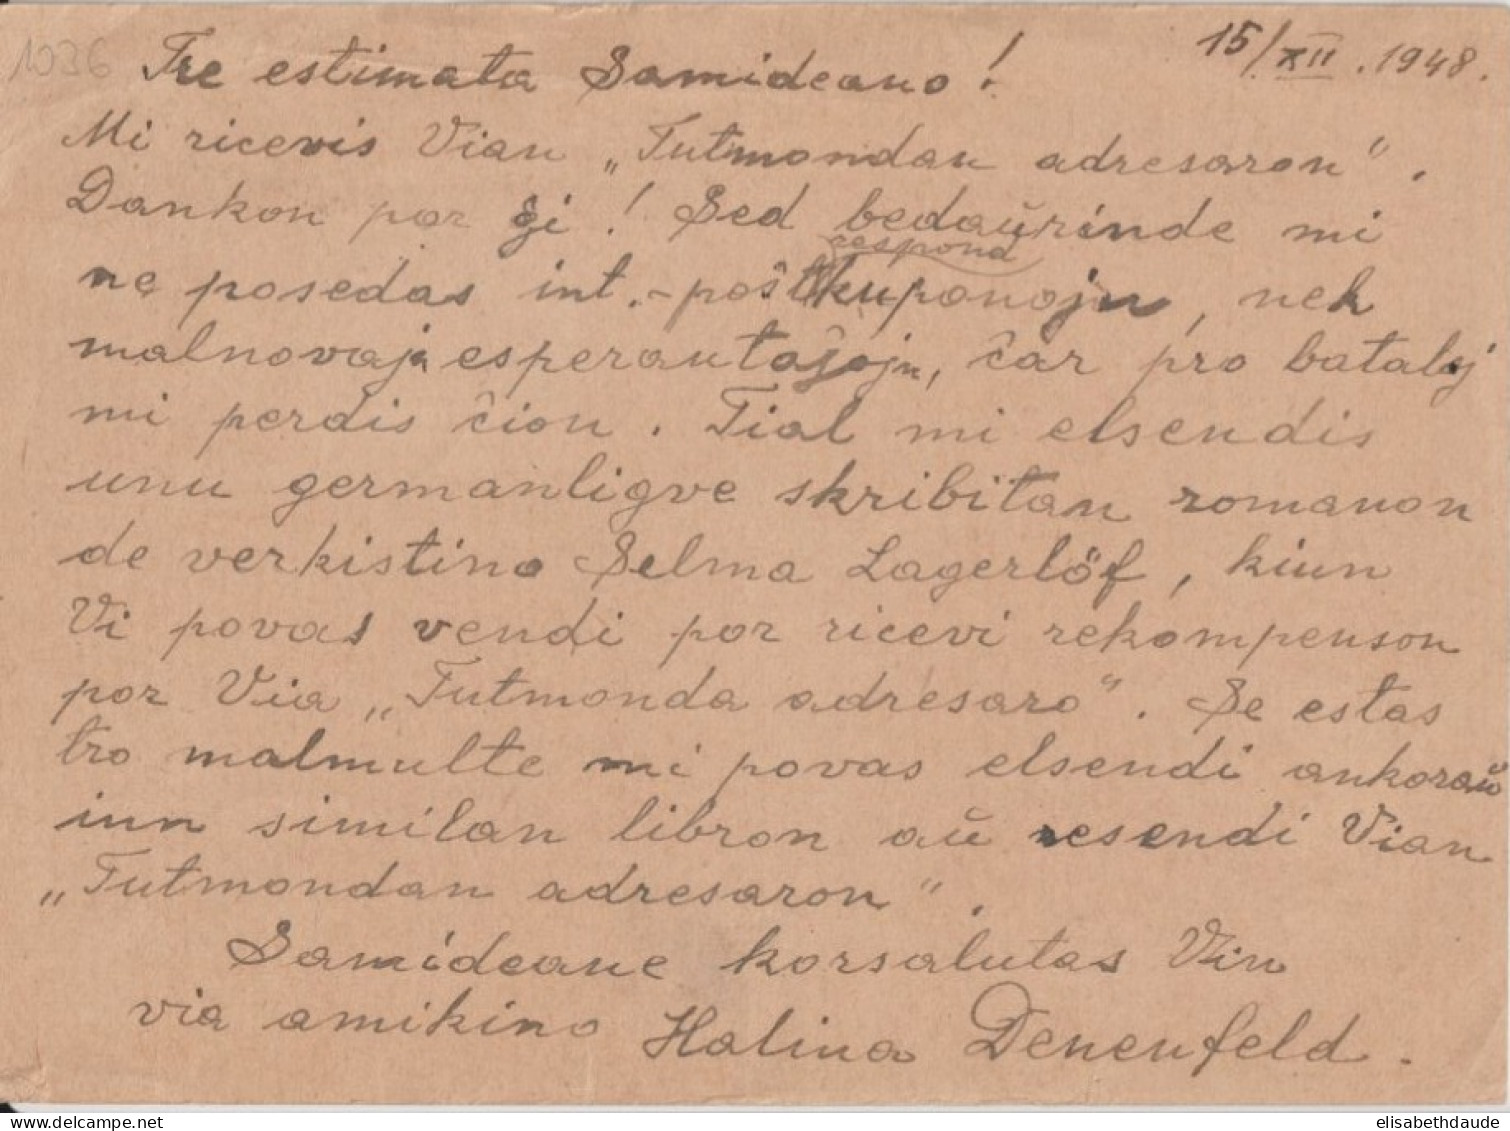 1036
15/XII. 1948.
Tre estimata Samideano!
Mi ricevis Vian „Tutmondan adresaron".
Dankon por ĝi! Sed bedaŭrinde mi
respond
ne posedas int.-poŝtkuponojn, nek
malnovajn esperantaĵojn, ĉar pro bataloj
mi perdis ĉion. Tial mi elsendis
unu germanligve skribitan romanon
de verkistino Selma Lagerlöf, kiun
Vi povas vendi por ricevi rekompenson
por Via „Tutmonda adresaro". Se estas
tro malmulte mi povas elsendi ankoraŭ
iun similan libron aŭ resendi Vian
„Tutmondan adresaron".
Samideane korsalutas Vin
via amikino Halina Denenfeld.
elisabethdaude